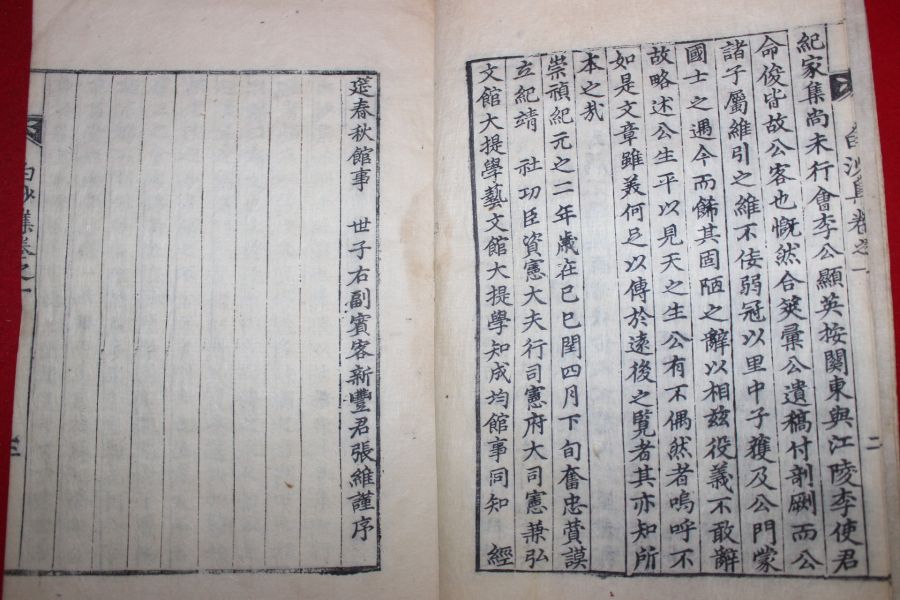 白沙集卷之一
二
紀家集尚未行會李公顯英按關東與江陵李使君
命俊皆故公客也慨然合筴彙公遺稿付剞劂而公
諸子屬維引之維不佞弱冠以里中子獲及公門蒙
國士之遇今而飾其固陋之辭以相玆役義不敢辭
故略述公生平以見天之生公有不偶然者嗚呼不
如是文章雖美何足以傳於遠後之覽者其亦知所
本之哉
崇禎紀元之二年歲在己巳閏四月下旬奮忠贊謨
立紀靖 社功臣資憲大夫行司憲府大司憲兼弘
文館大提學藝文館大提學知成均館事同知 經
筵春秋館事 世子右副賓客新豐君張維謹序
白沙集卷之一